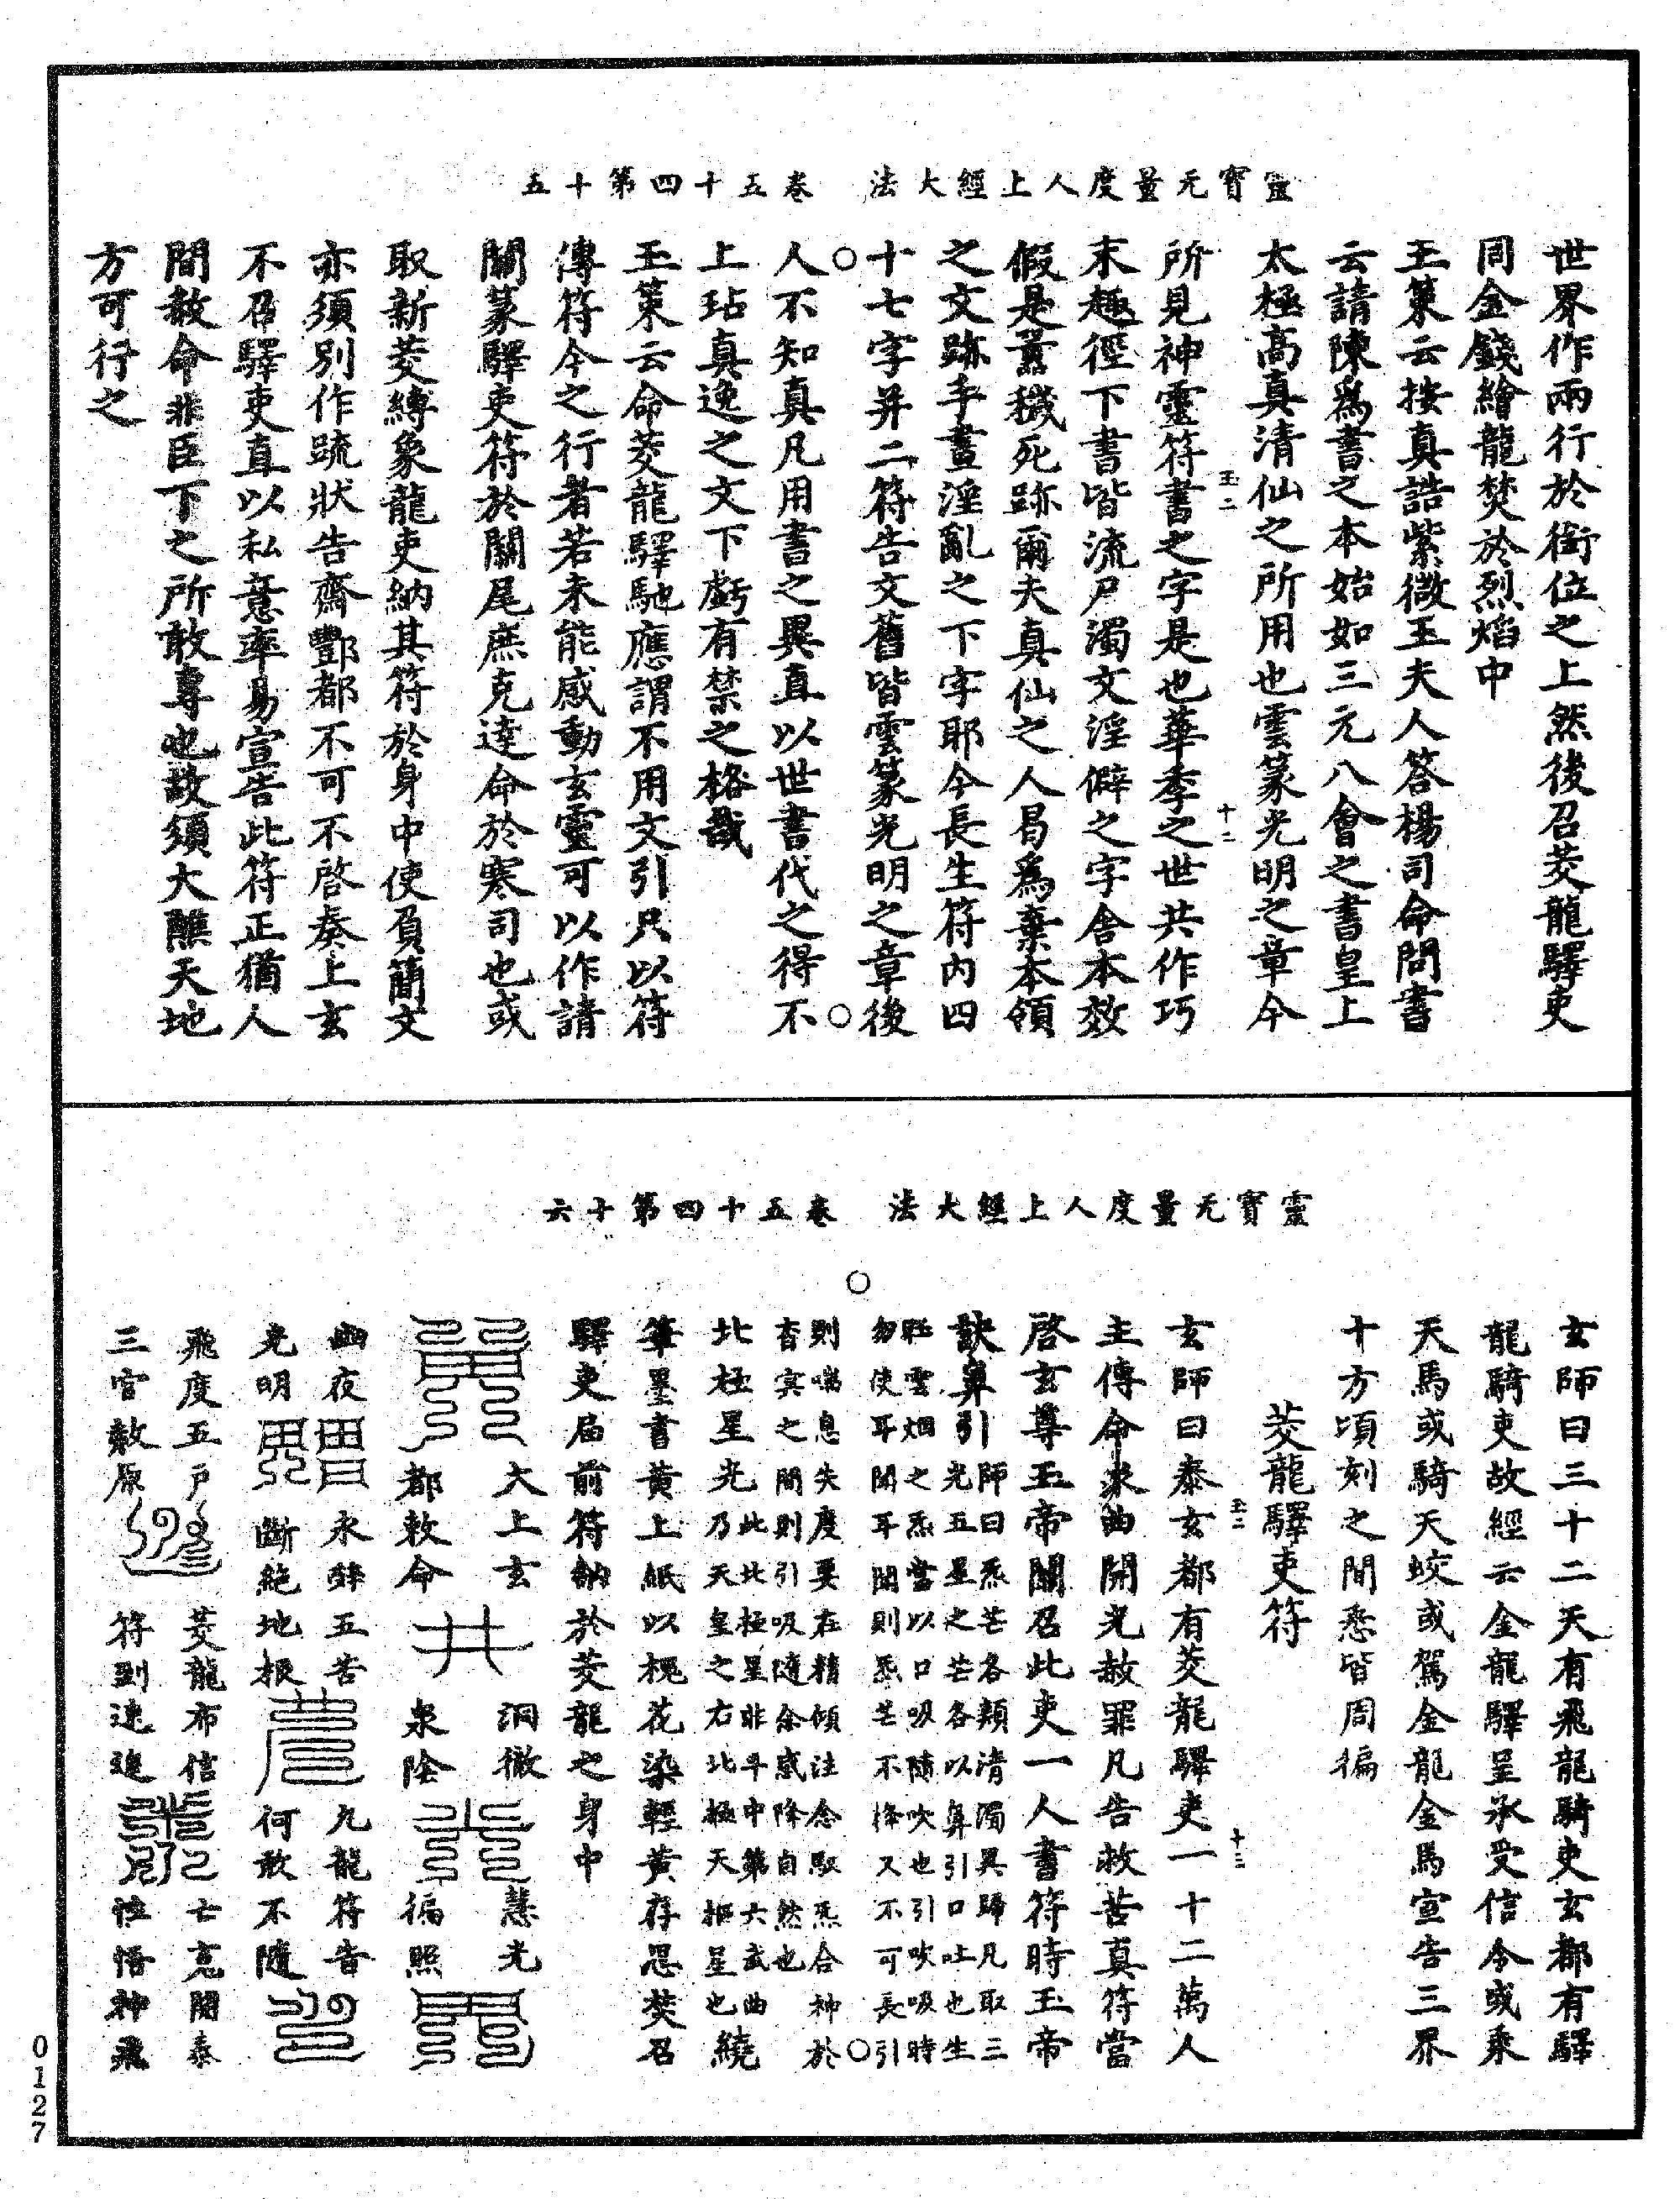 靈寶无量度人上經大法　卷五十四第十五
世界作兩行於銜位之上然後召茭龍驛吏
同金錢繪龍焚於烈焰中
玉策云按真誥紫微玉夫人答楊司命問書
云請陳爲書之本始如三元八會之書皇上
太極高真清仙之所用也雲篆光明之章今
玉二　十二
所見神靈符書之字是也華季之世共作巧
末趣徑下書皆流尸濁文淫僻之字舍本效
假是囂穢死跡爾夫真仙之人曷爲棄本領
之文跡手畫淫亂之下字耶今長生符内四
十七字并二符告文舊皆雲篆光明之章後
人不知真凡用書之異直以世書代之得不
上玷真逸之文下虧有禁之格哉
玉策云命茭龍驛馳應謂不用文引只以符
傳符今之行者若未能感動玄靈可以作請
關篆驛吏符於關尾庶克達命於寒司也或
取新茭縛象龍吏納其符於身中使負簡文
亦須別作疏狀告齋酆都不可不啓奏上玄
不召驛吏直以私意率易宣告此符正猶人
間赦命非臣下之所敢專也故須大醮天地
方可行之
靈寶无量度人上經大法　卷五十四第十六
玄師曰三十二天有飛龍騎吏玄都有驛
龍騎吏故經云金龍驛呈承受信令或乘
天馬或騎天蛟或駕金龍金馬宣告三界
十方頃刻之間悉皆周徧
茭龍驛吏符
玉二　十三
玄師曰泰玄都有茭龍驛吏一十二萬人
主傳命衆曲開光赦罪凡告救苦真符當
啓玄尊玉帝關召此吏一人書符時玉帝
訣鼻引師曰炁芒各類清濁異歸凡取三
光五星之芒各以鼻引口吐也生
旺雲烟之炁當以口吸隨吹也引吹吸時
勿使耳聞耳聞則炁芒不降又不可長引
則喘息失度要在精傾注念馭炁合神於
杳冥之間則引吸隨余感降自然也
北極星光乃此北極星非斗中第六武曲
天皇之右北極天樞星也繞
筆墨書黃上紙以槐花染輕黃存思焚召
驛吏届前符納於茭龍之身中
大上玄　洞徹　慧光
都敕命　泉陰　徧照
幽夜　永辭五苦　九龍符告
光明　斷絶地根　何敢不隨
飛度五戶　茭龍布信　亡魂聞泰
三官敷原　符到速進　性悟神飛
0127